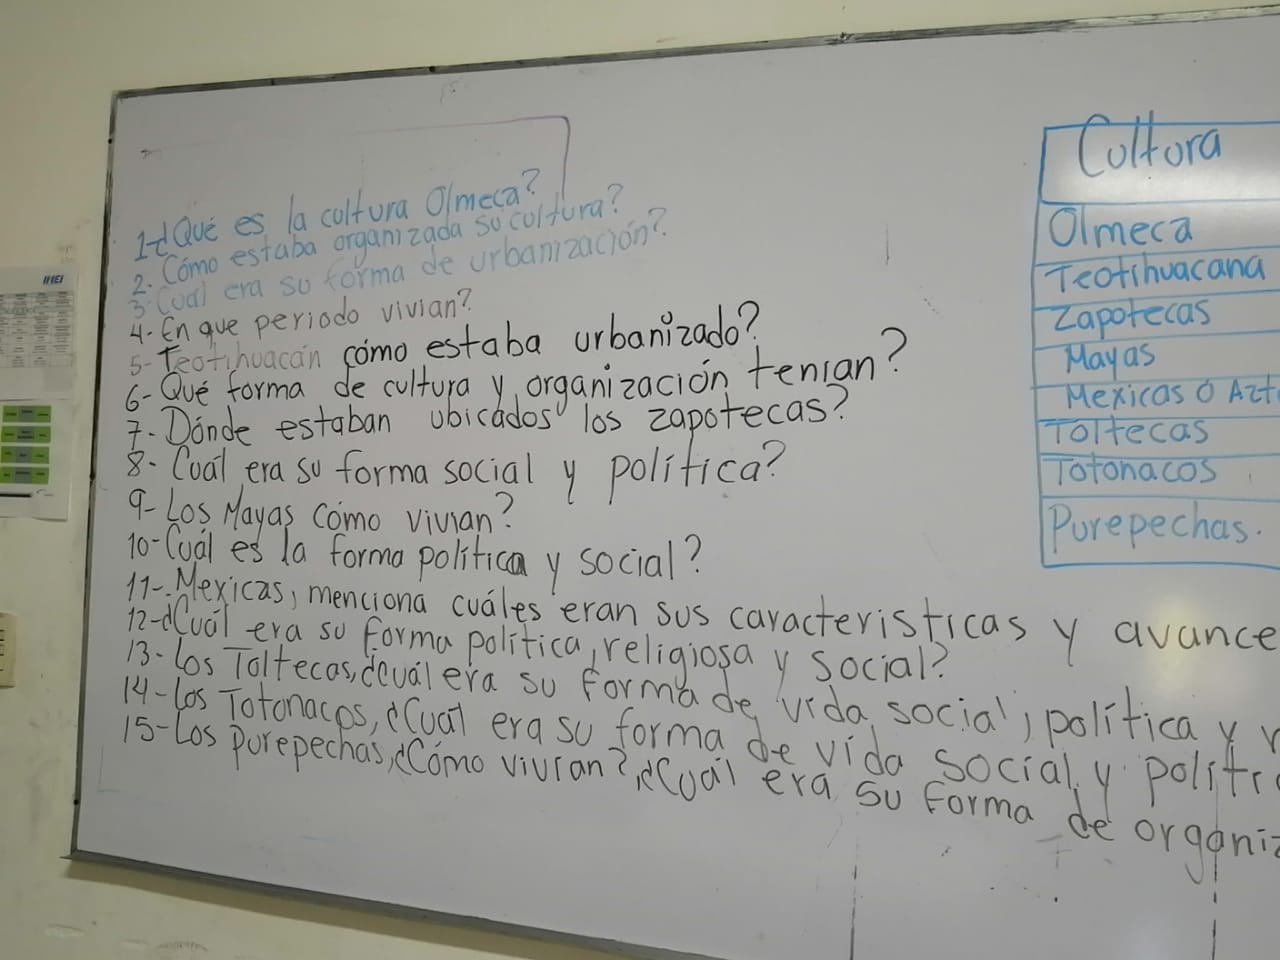 1-¿Qué es la cultura Olmeca?
2. Cómo estaba organizada su cultura?
3-Cuál era su forma de urbanización?
4- En que periodo vivian?
5- Teotihuacán cómo estaba urbanizado?
6- Qué forma de cultura y organización tenian?
7- Dónde estaban ubicados los zapotecas?
8- Cuál era su forma social y política?
9- Los Mayas Cómo vivian?
10- Cuál es la forma política y social?
11-. Mexicas, menciona cuáles eran sus caracteristicas y avance
12-¿Cuál era su forma política, religiosa y social?
13- Los Toltecas, ¿Cuál era su forma de vida social, política y
14- Los Totonacos, ¿Cuál era su forma de vida social y polític
15- Los purepechas, ¿Cómo vivian?, ¿Cuál era su forma de organiz
Cultura
Olmeca
Teotihuacana
Zapotecas
Mayas
Mexicas ó Azt
Toltecas
Totonacos
Purepechas.
INEI